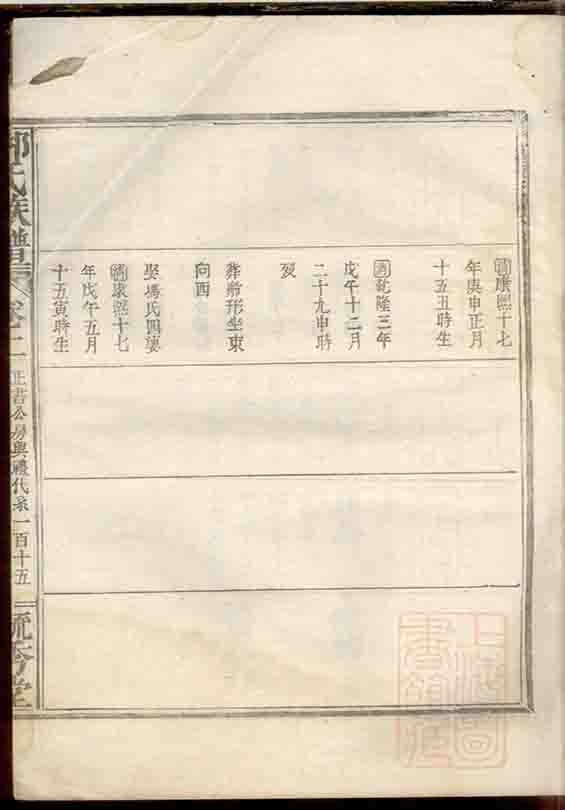 清康熙十七
年庚申正月
十五丑時生
清乾隆三年
戊午十二月
二十九申時
歿
葬
坐東
向西
娶馮氏四婆
清康熙十七
年戊午五月
十五寅時生
氏族譜
卷二
正書公房興禮代系一百十五
堂
上海圖
書館藏